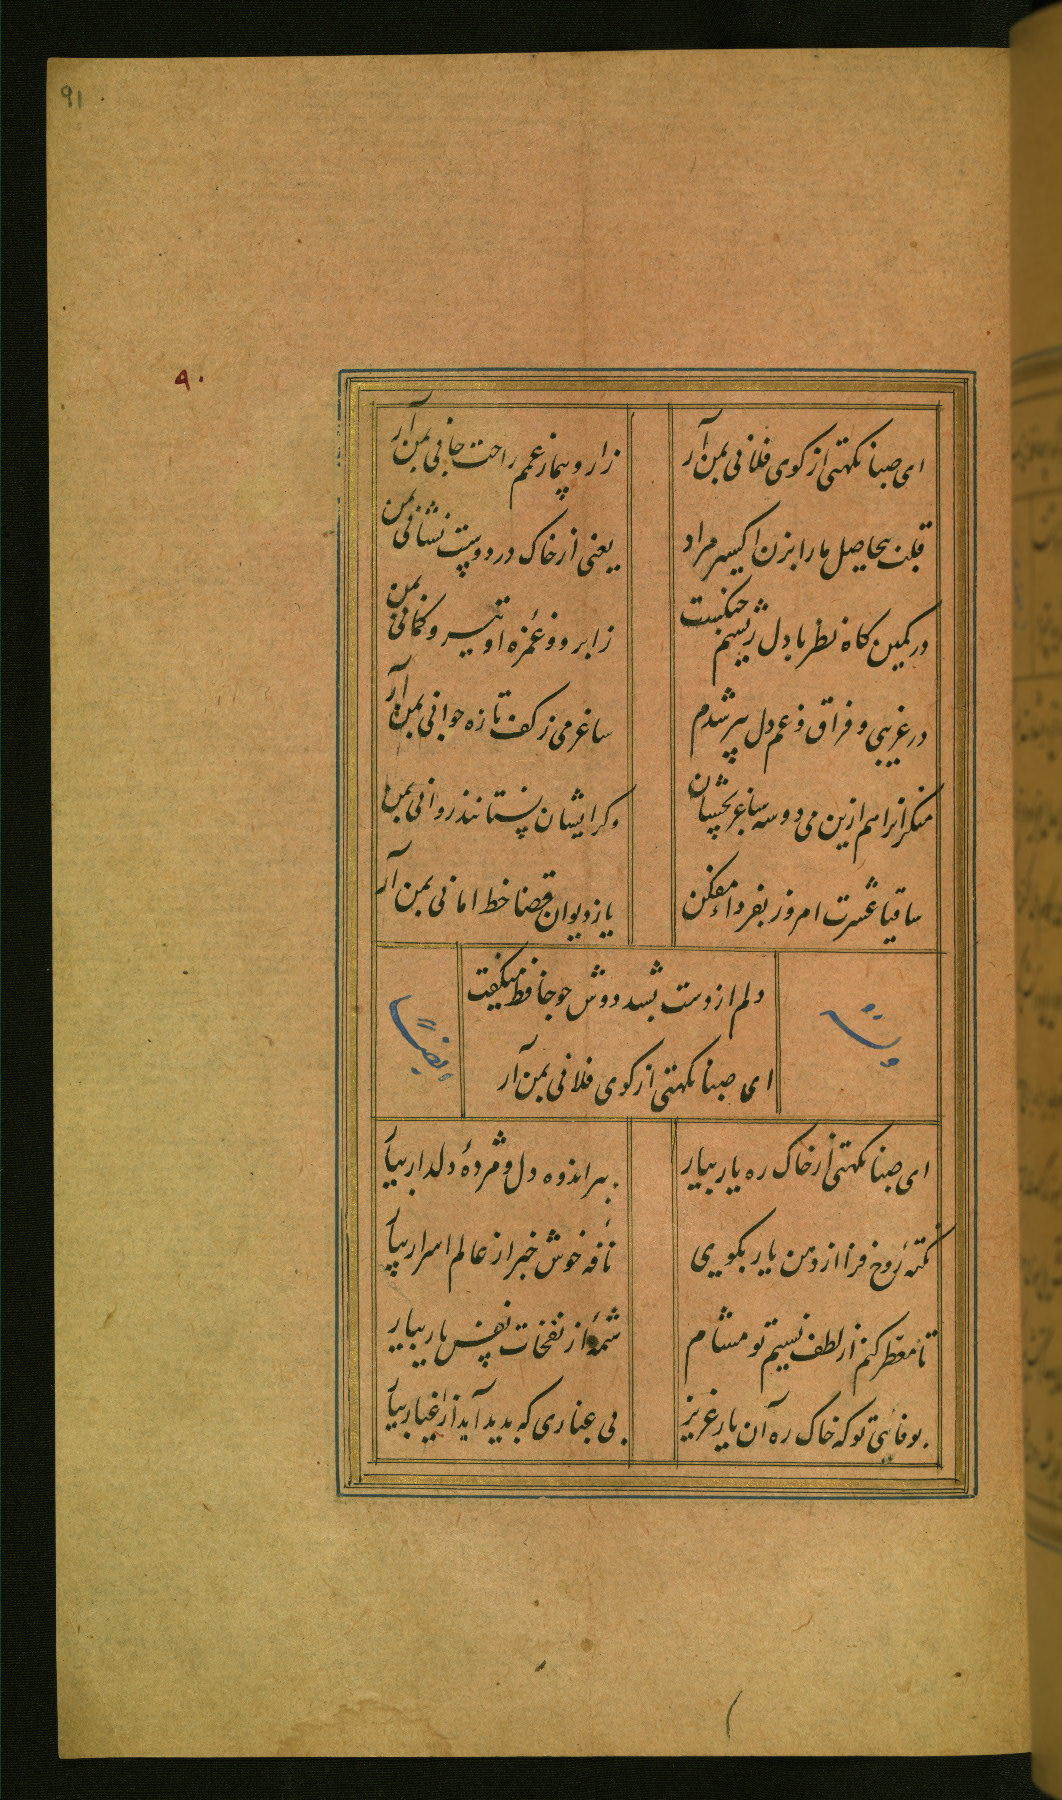 91
۹۰
ای صبا نکهتی از کوی فلانی بمن آر
زار و بیمار غمم راحت جانی بمن آر
قلب بیحاصل ما را بزن اکسیر مراد
یعنی از خاک در دوست نشانی بمن
در کمین کاه نظر با دل ریشم جنکست
ز ابرو و غمزه او تیر و کمانی بمن
در غریبی و فراق و غم دل پیر شدم
ساغر می ز کف تازه جوانی بمن آر
منکرانرا هم ازین می دو سه ساغر بچشان
وکر ایشان نستانند روانی بمن
ساقیا عشرت امروز بفردا مفکن
یا ز دیوان قضا خط امانی بمن آر
دلم از دست بشد دوش چو حافظ میکفت
ای صبا نکهتی از کوی فلانی بمن آر
وله
ایضاً
ای صبا نکهتی از خاک ره یار بیار
ببر اندوه دل و مژدهٔ دلدار بیار
نکتهٔ روح فزا از دهن یار بکویی
نافه خوش خبر از عالم اسرار بیار
تا معطر کنم از لطف نسیم تو مشام
شمهٔ از نفخات نفس یار بیار
بوفای تو که خاک ره آن یار عزیز
بی غباری که بدید آید از اغیار بیار